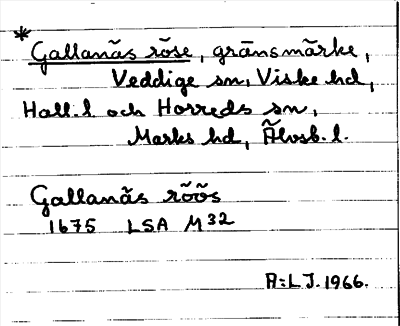 *Gallanäs röse, gränsmärke,
Veddige sn, Viske hd,
Hall. l. och Horreds sn,
Marks hd, Älvsb. l.
Gallanäs röös
1675 LSA M32
A:LJ. 1966.